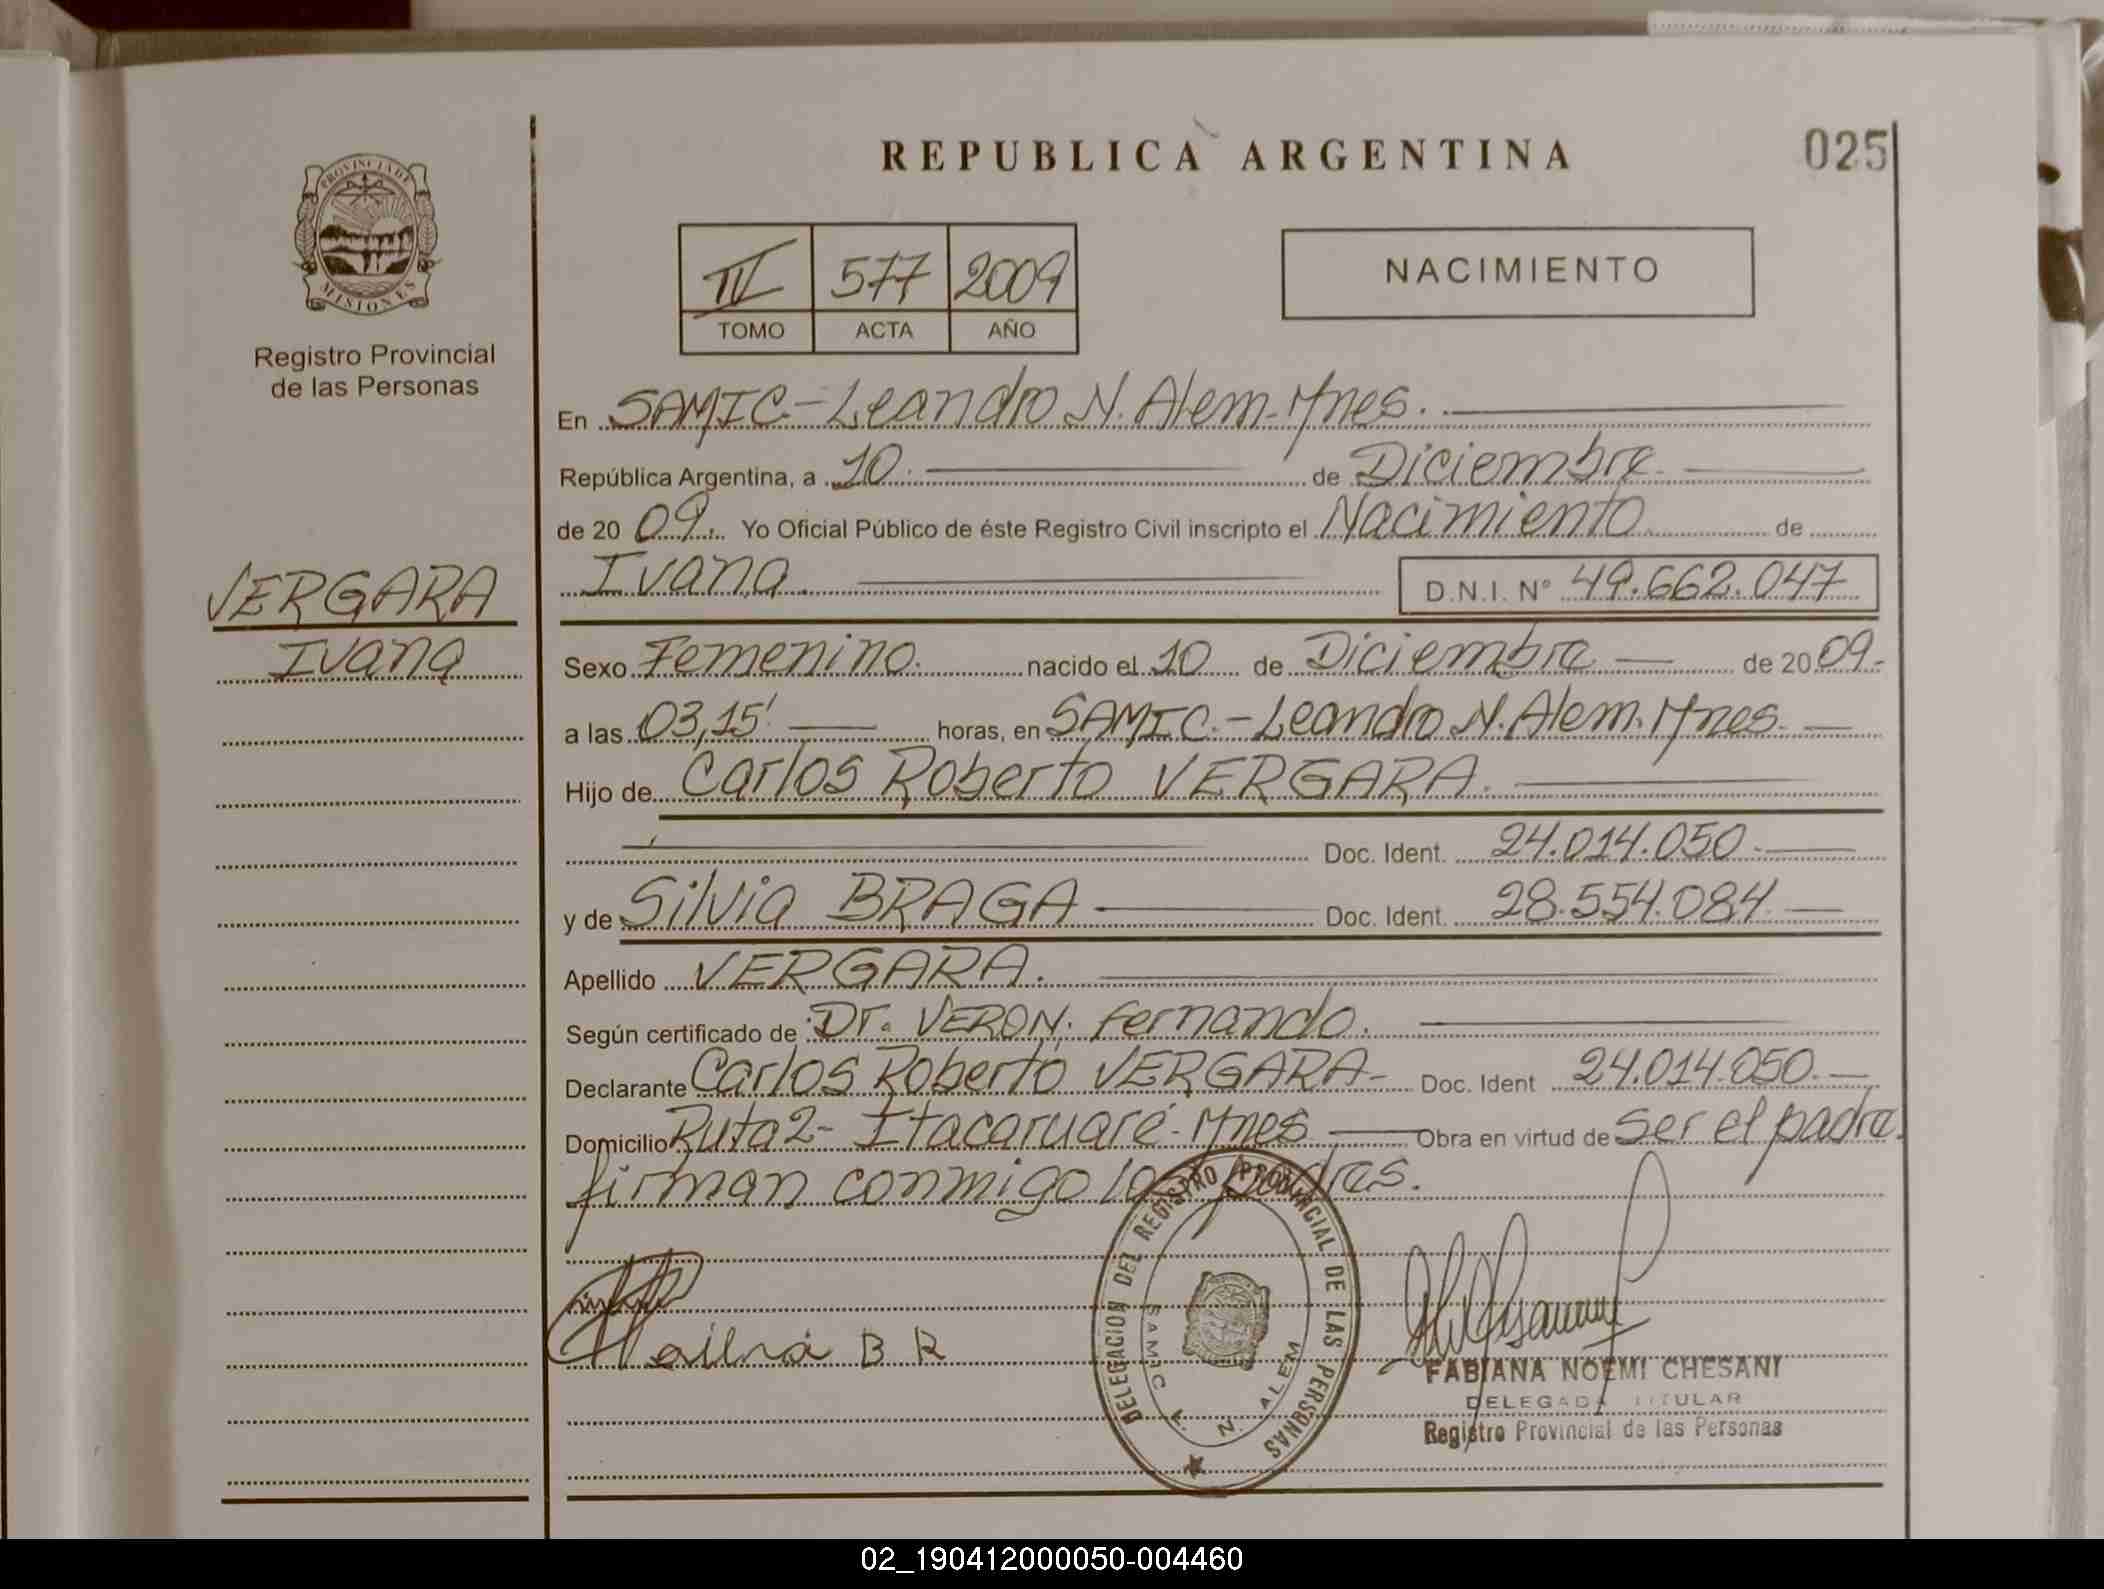 REPUBLICA ARGENTINA
025
PROVINCIA DE
MISIONES
Registro Provincial
de las Personas
IV 577 2009
TOMO ACTA AÑO
NACIMIENTO
En SAMIC.-Leandro N. Alem-Mnes.
República Argentina, a 10. de Diciembre.
de 20 09. Yo Oficial Público de éste Registro Civil inscripto el Nacimiento de
Ivana. D.N.I. N° 49.662.047
VERGARA
Ivana
Sexo Femenino. nacido el 10 de Diciembre de 20 09.-
a las 03,15' horas, en SAMIC.-Leandro N. Alem. Mnes.
Hijo de Carlos Roberto VERGARA.
Doc. Ident. 24.014.050.
y de Silvia BRAGA Doc. Ident. 28.554.084
Apellido VERGARA.
Según certificado de Dr. VERON. Fernando.
Declarante Carlos Roberto VERGARA- Doc. Ident 24.014.050.
Domicilio Ruta 2- Itacaruaré-Mnes Obra en virtud de ser el padre.
firman conmigo los padres.
DELEGACION DEL REGISTRO PROVINCIAL DE LAS PERSONAS
SAMIC L. N. ALEM
B R
FABIANA NOEMI CHESANI
DELEGADA TITULAR
Registro Provincial de las Personas
02_190412000050-004460